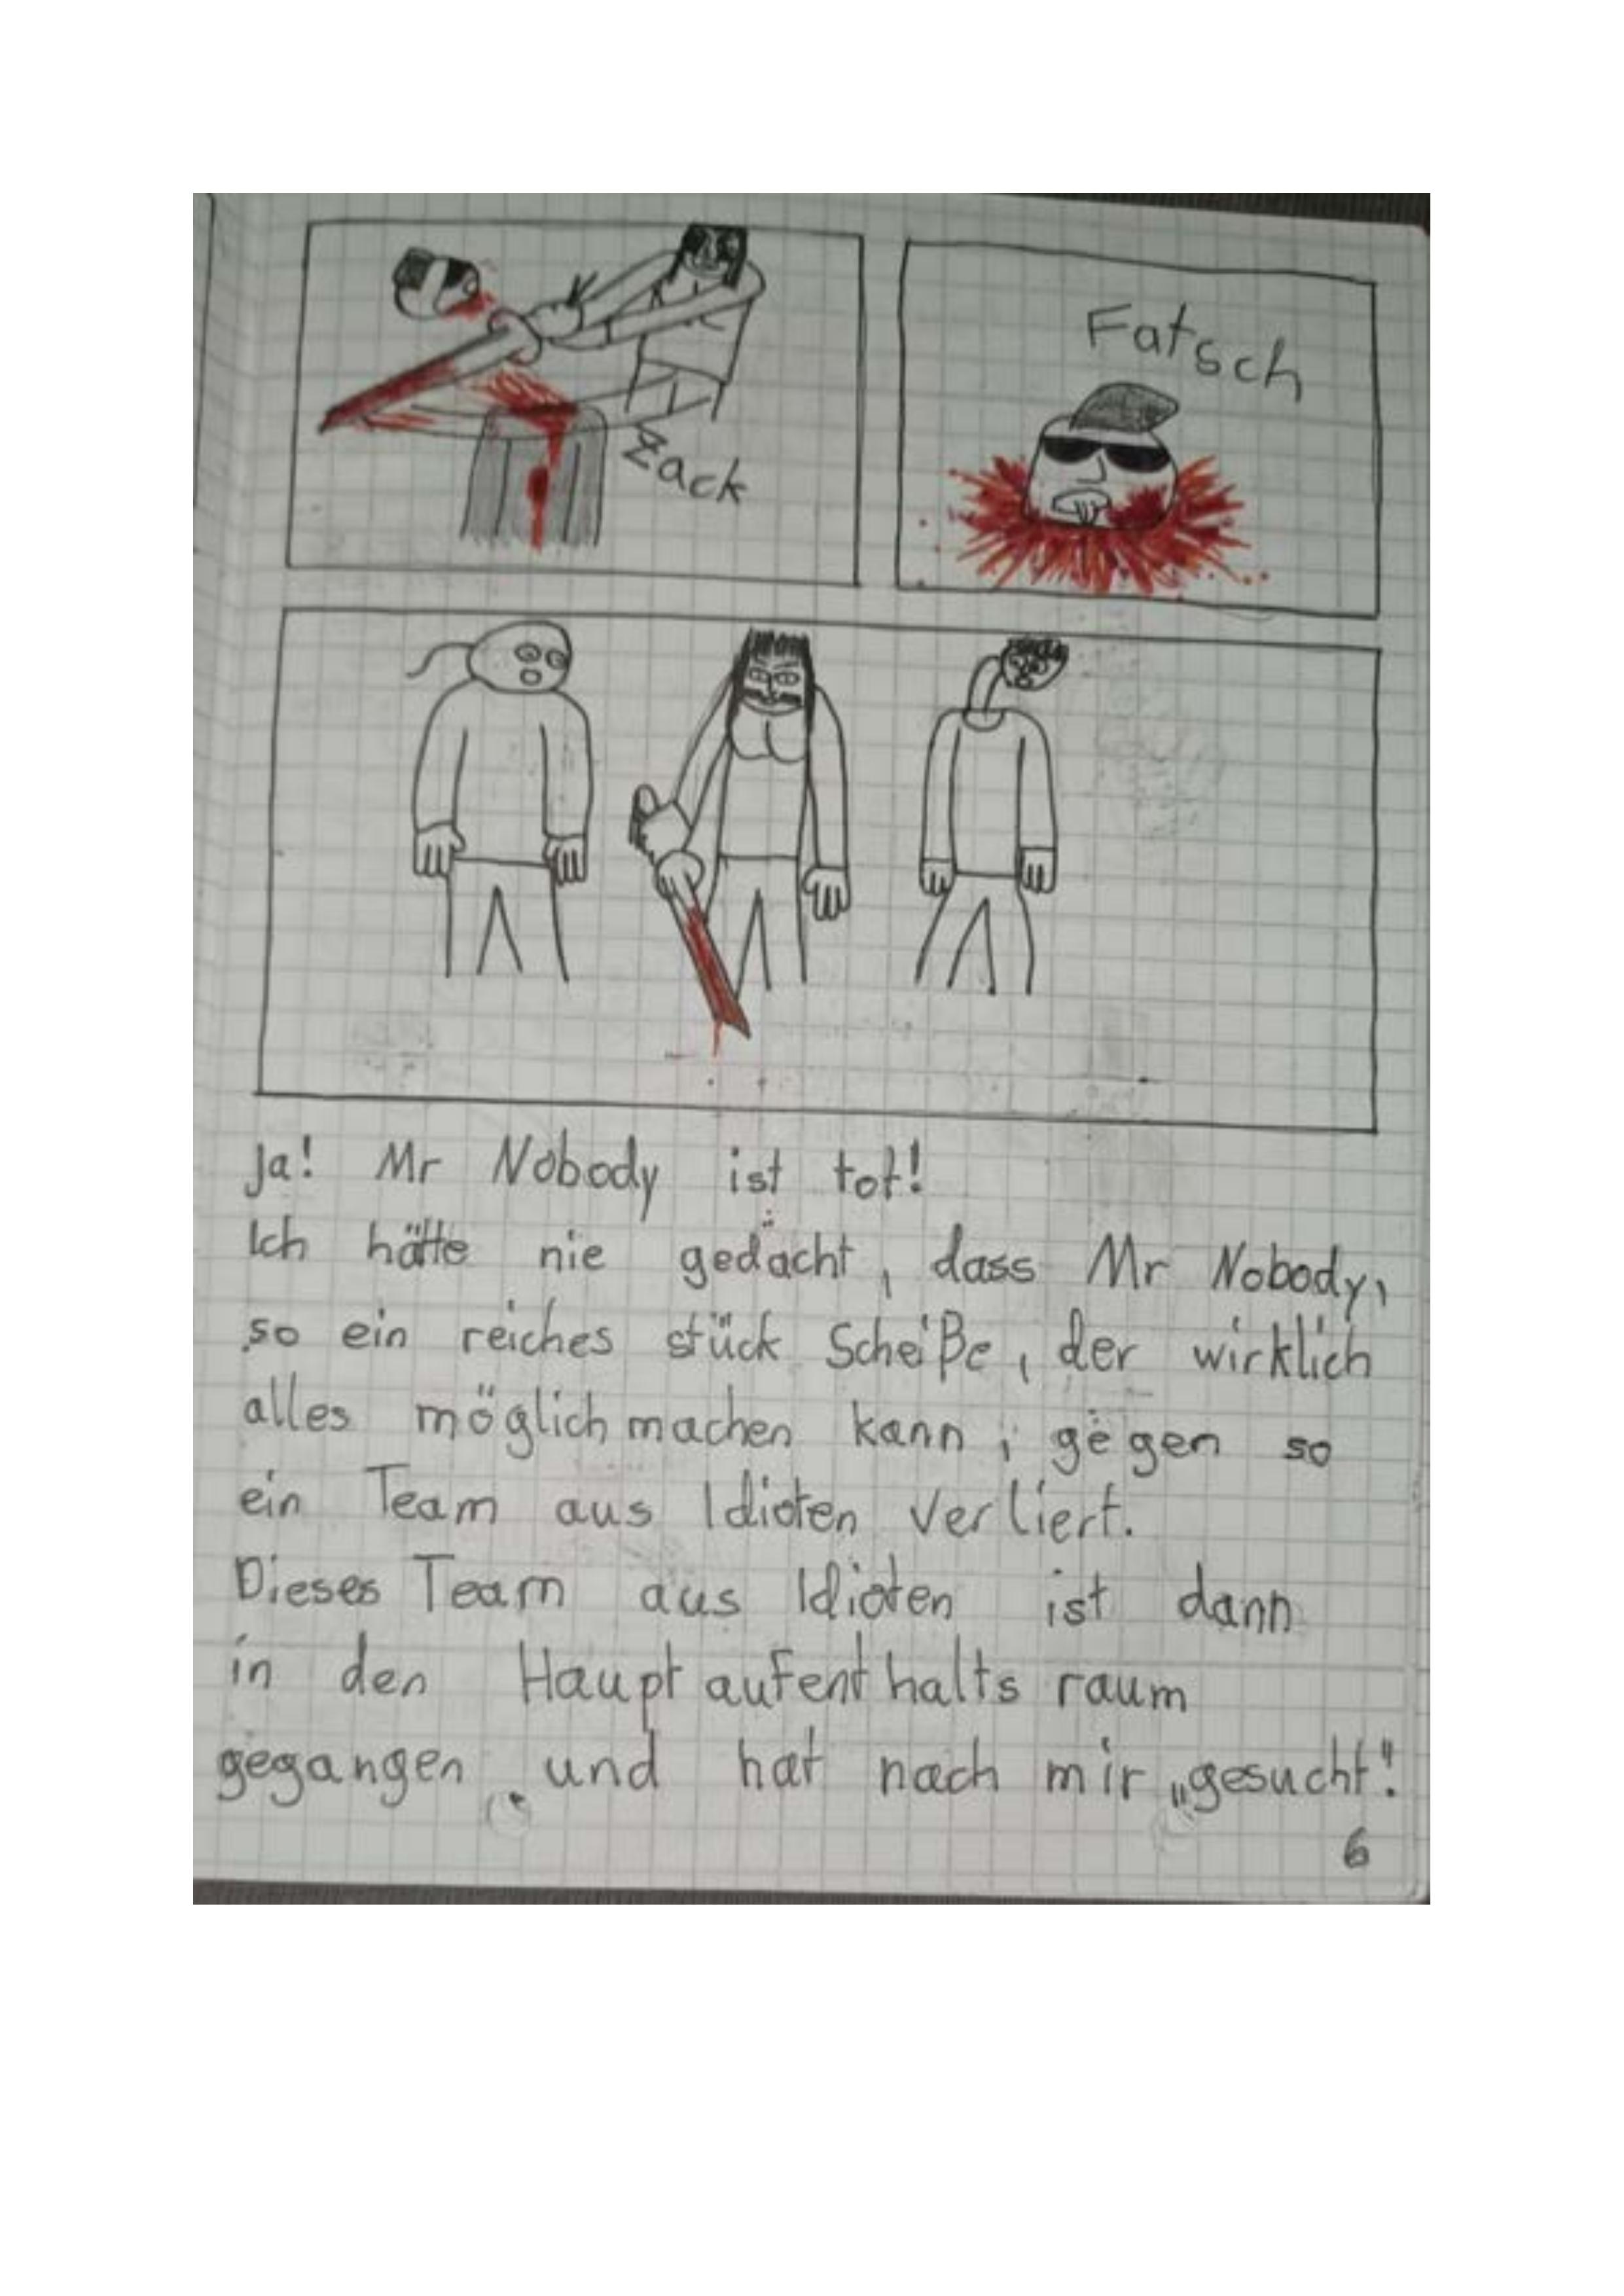 Zack
Fatsch
Ja! Mr Nobody ist tot!
Ich hätte nie gedacht, dass Mr Nobody,
so ein reiches stück Scheiße, der wirklich
alles möglich machen kann, gegen so
ein Team aus Idioten verliert.
Dieses Team aus Idioten ist dann
in den Hauptaufenthaltsraum
gegangen und hat nach mir „gesucht".
6